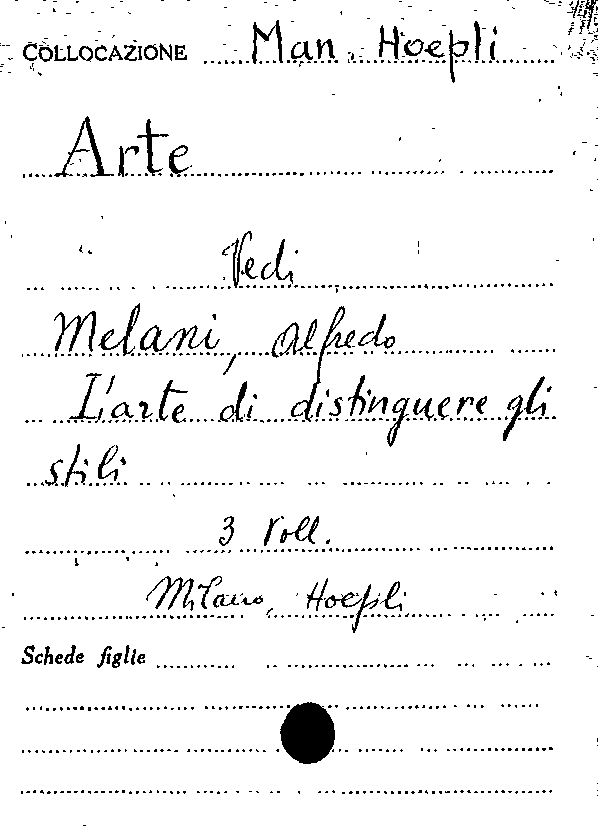 COLLOCAZIONE Man. Hoepli
Arte
Vedi
Melani, Alfredo
L'arte di distinguere gli
stili
3 Voll.
Milano, Hoepli
Schede figlie